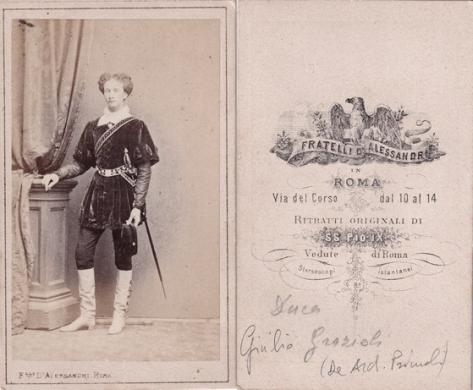 F.lli D'ALESSANDRI. ROMA
FRATELLI D'ALESSANDRI
IN
ROMA
Via del Corso dal 10 al 14
RITRATTI ORIGINALI DI
SS. PIO IX
Vedute di Roma
Stereoscopi istantanei
Duca
Giulio Grazioli
(De Ard.